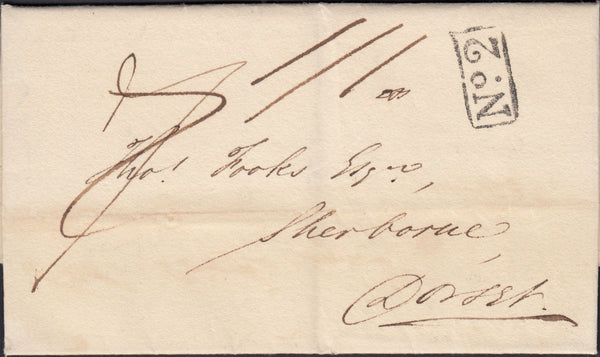 No. 2
Thos. Fooks Esqre,
Sherborne,
Dorset.